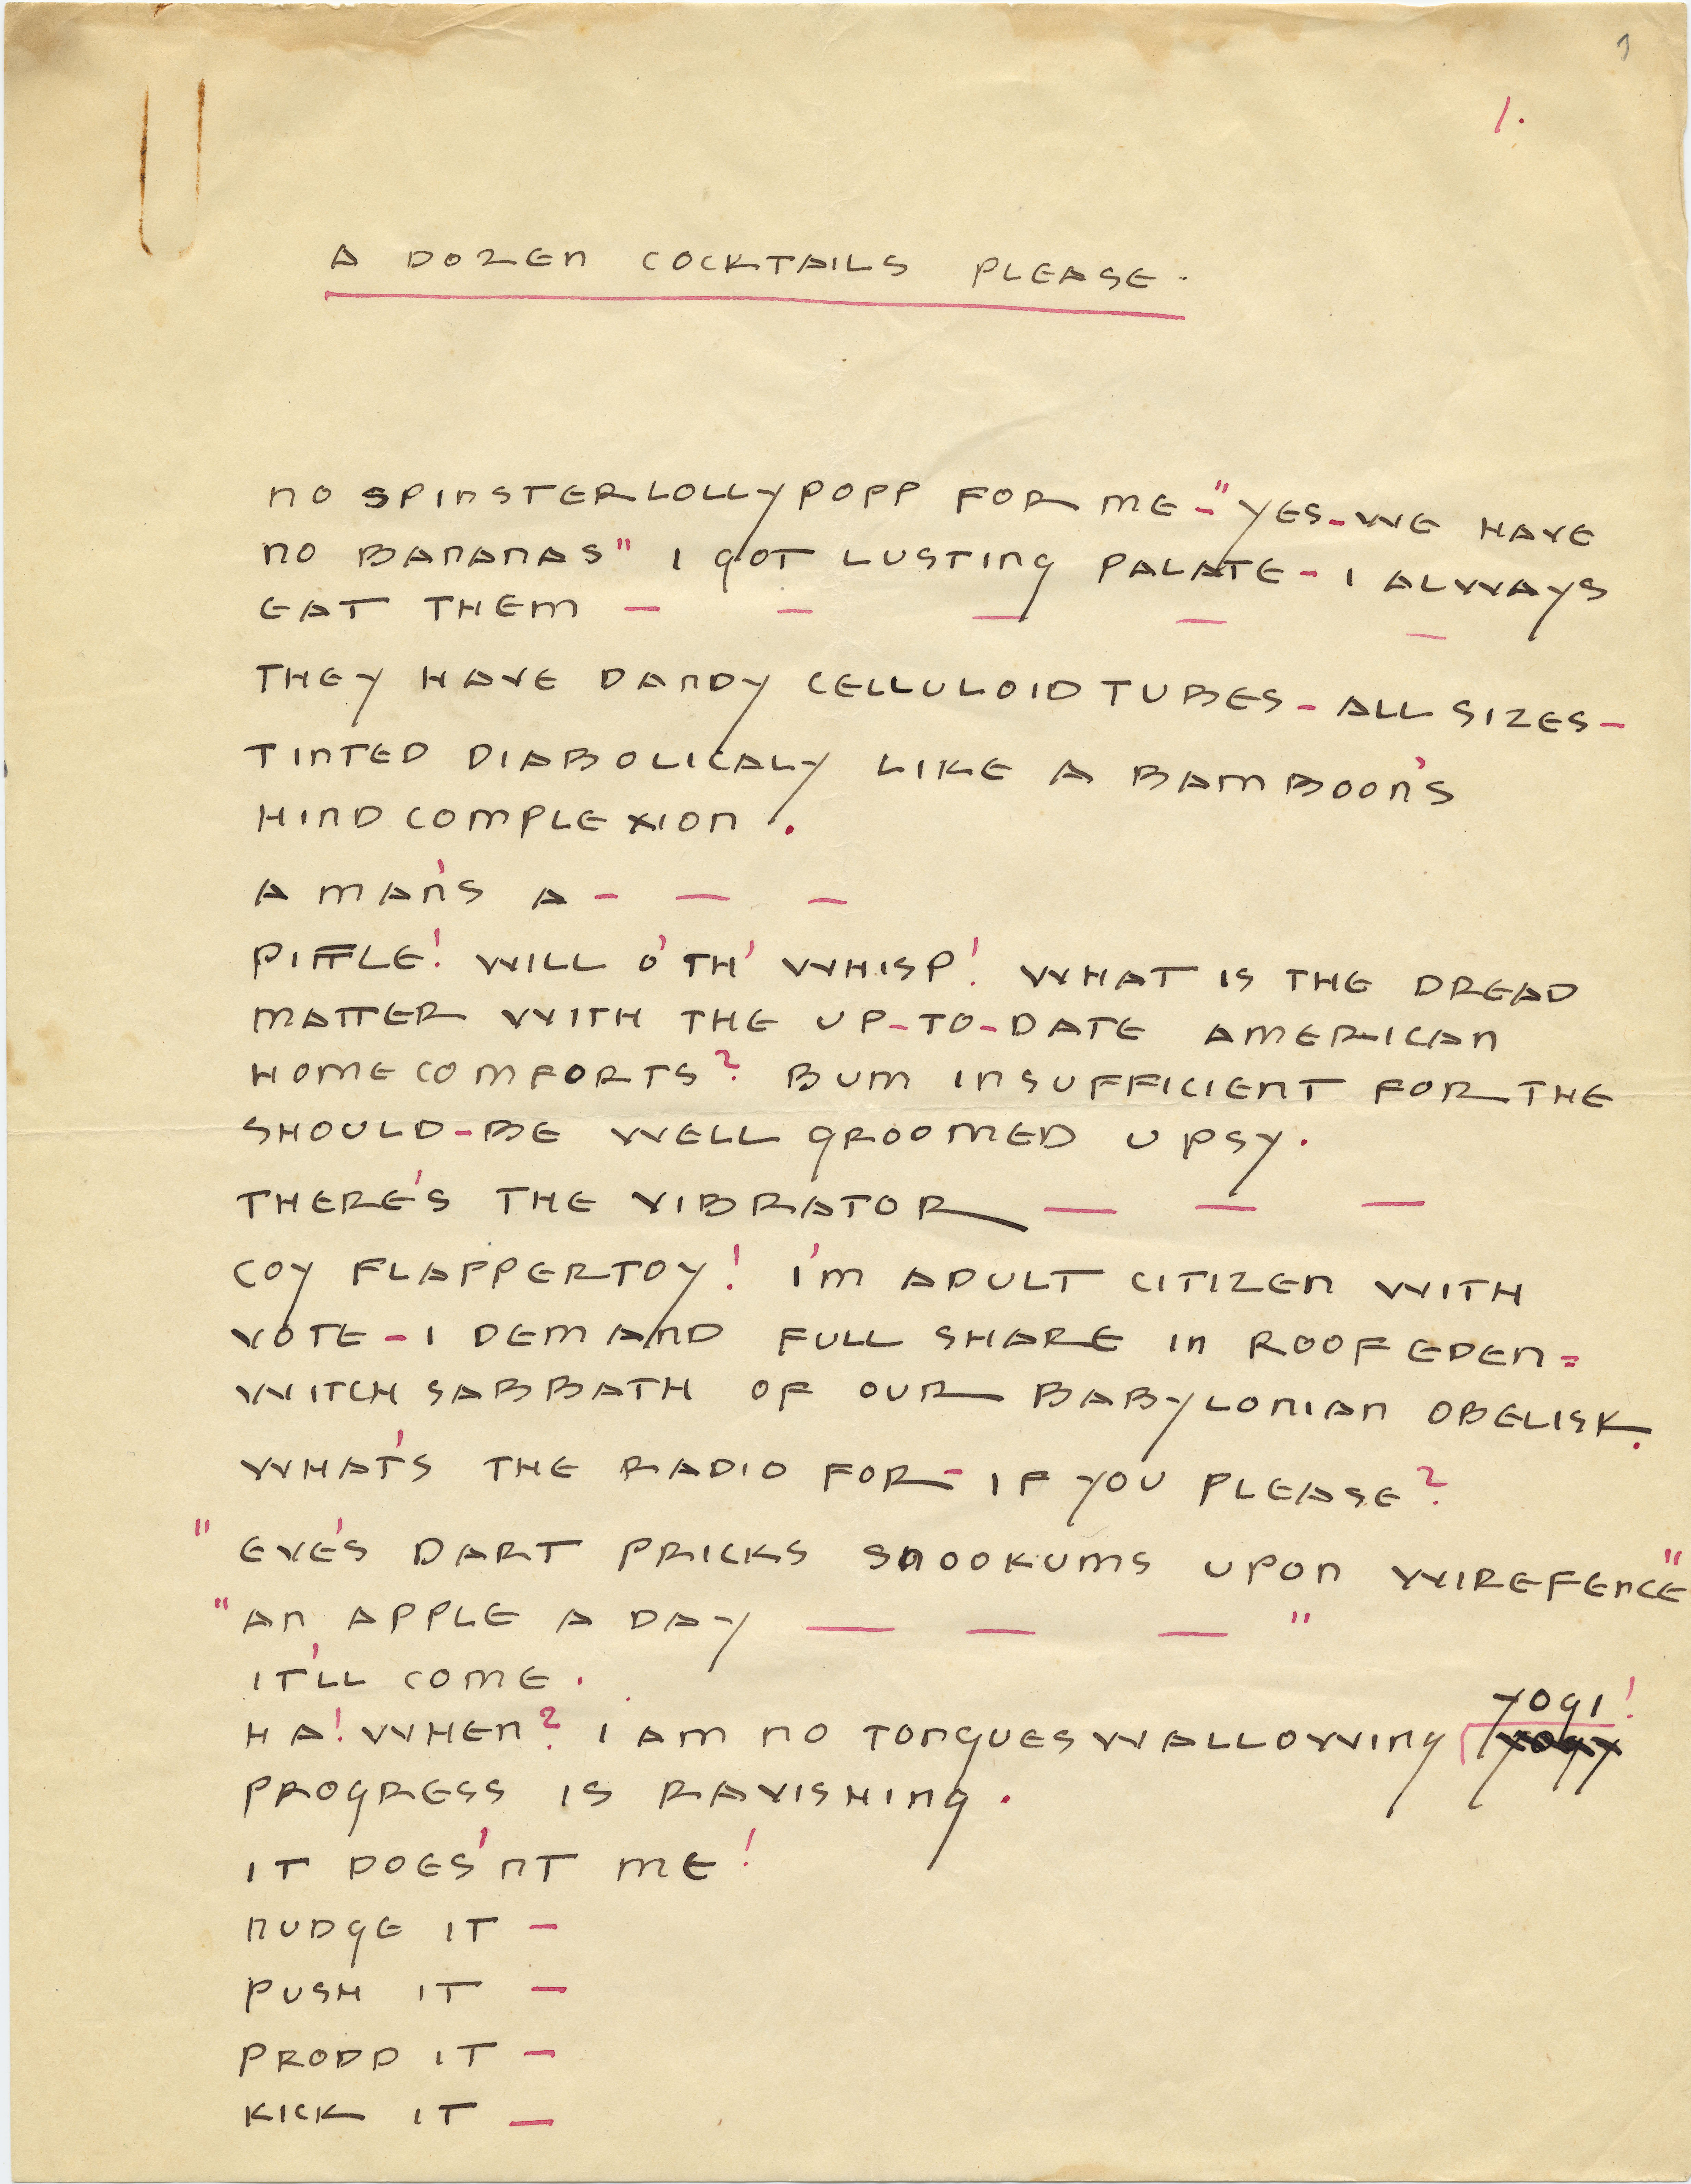 1.
A DOZEN COCKTAILS PLEASE.
NO SPINSTERLOLLYPOPP FOR ME – "YES – WE HAVE
NO BANANAS" I GOT LUSTING PALATE – I ALWAYS
EAT THEM – – – – –
THEY HAVE DANDY CELLULOID TUBES – ALL SIZES –
TINTED DIABOLICALY LIKE A BAMBOON'S
HIND COMPLEXION.
A MAN'S A – – –
PIFFLE! WILL O'TH' WHISP! WHAT IS THE DREAD
MATTER WITH THE UP-TO-DATE AMERICAN
HOME COMFORTS? BUM INSUFFICIENT FOR THE
SHOULD-BE WELL GROOMED UPSY.
THERE'S THE VIBRATOR – – –
COY FLAPPERTOY! I'M ADULT CITIZEN WITH
VOTE – I DEMAND FULL SHARE IN ROOF EDEN =
WITCHSABBATH OF OUR BABYLONIAN OBELISK.
WHAT'S THE RADIO FOR – IF YOU PLEASE?
"EVE'S DART PRICKS SNOOKUMS UPON WIREFENCE"
"AN APPLE A DAY – – – "
IT'LL COME.
YOGI!
HA! WHEN? I AM NO TONGUESWALLOWING YOGY
PROGRESS IS RAVISHING.
IT DOES'NT ME!
NUDGE IT –
PUSH IT –
PRODD IT –
KICK IT –